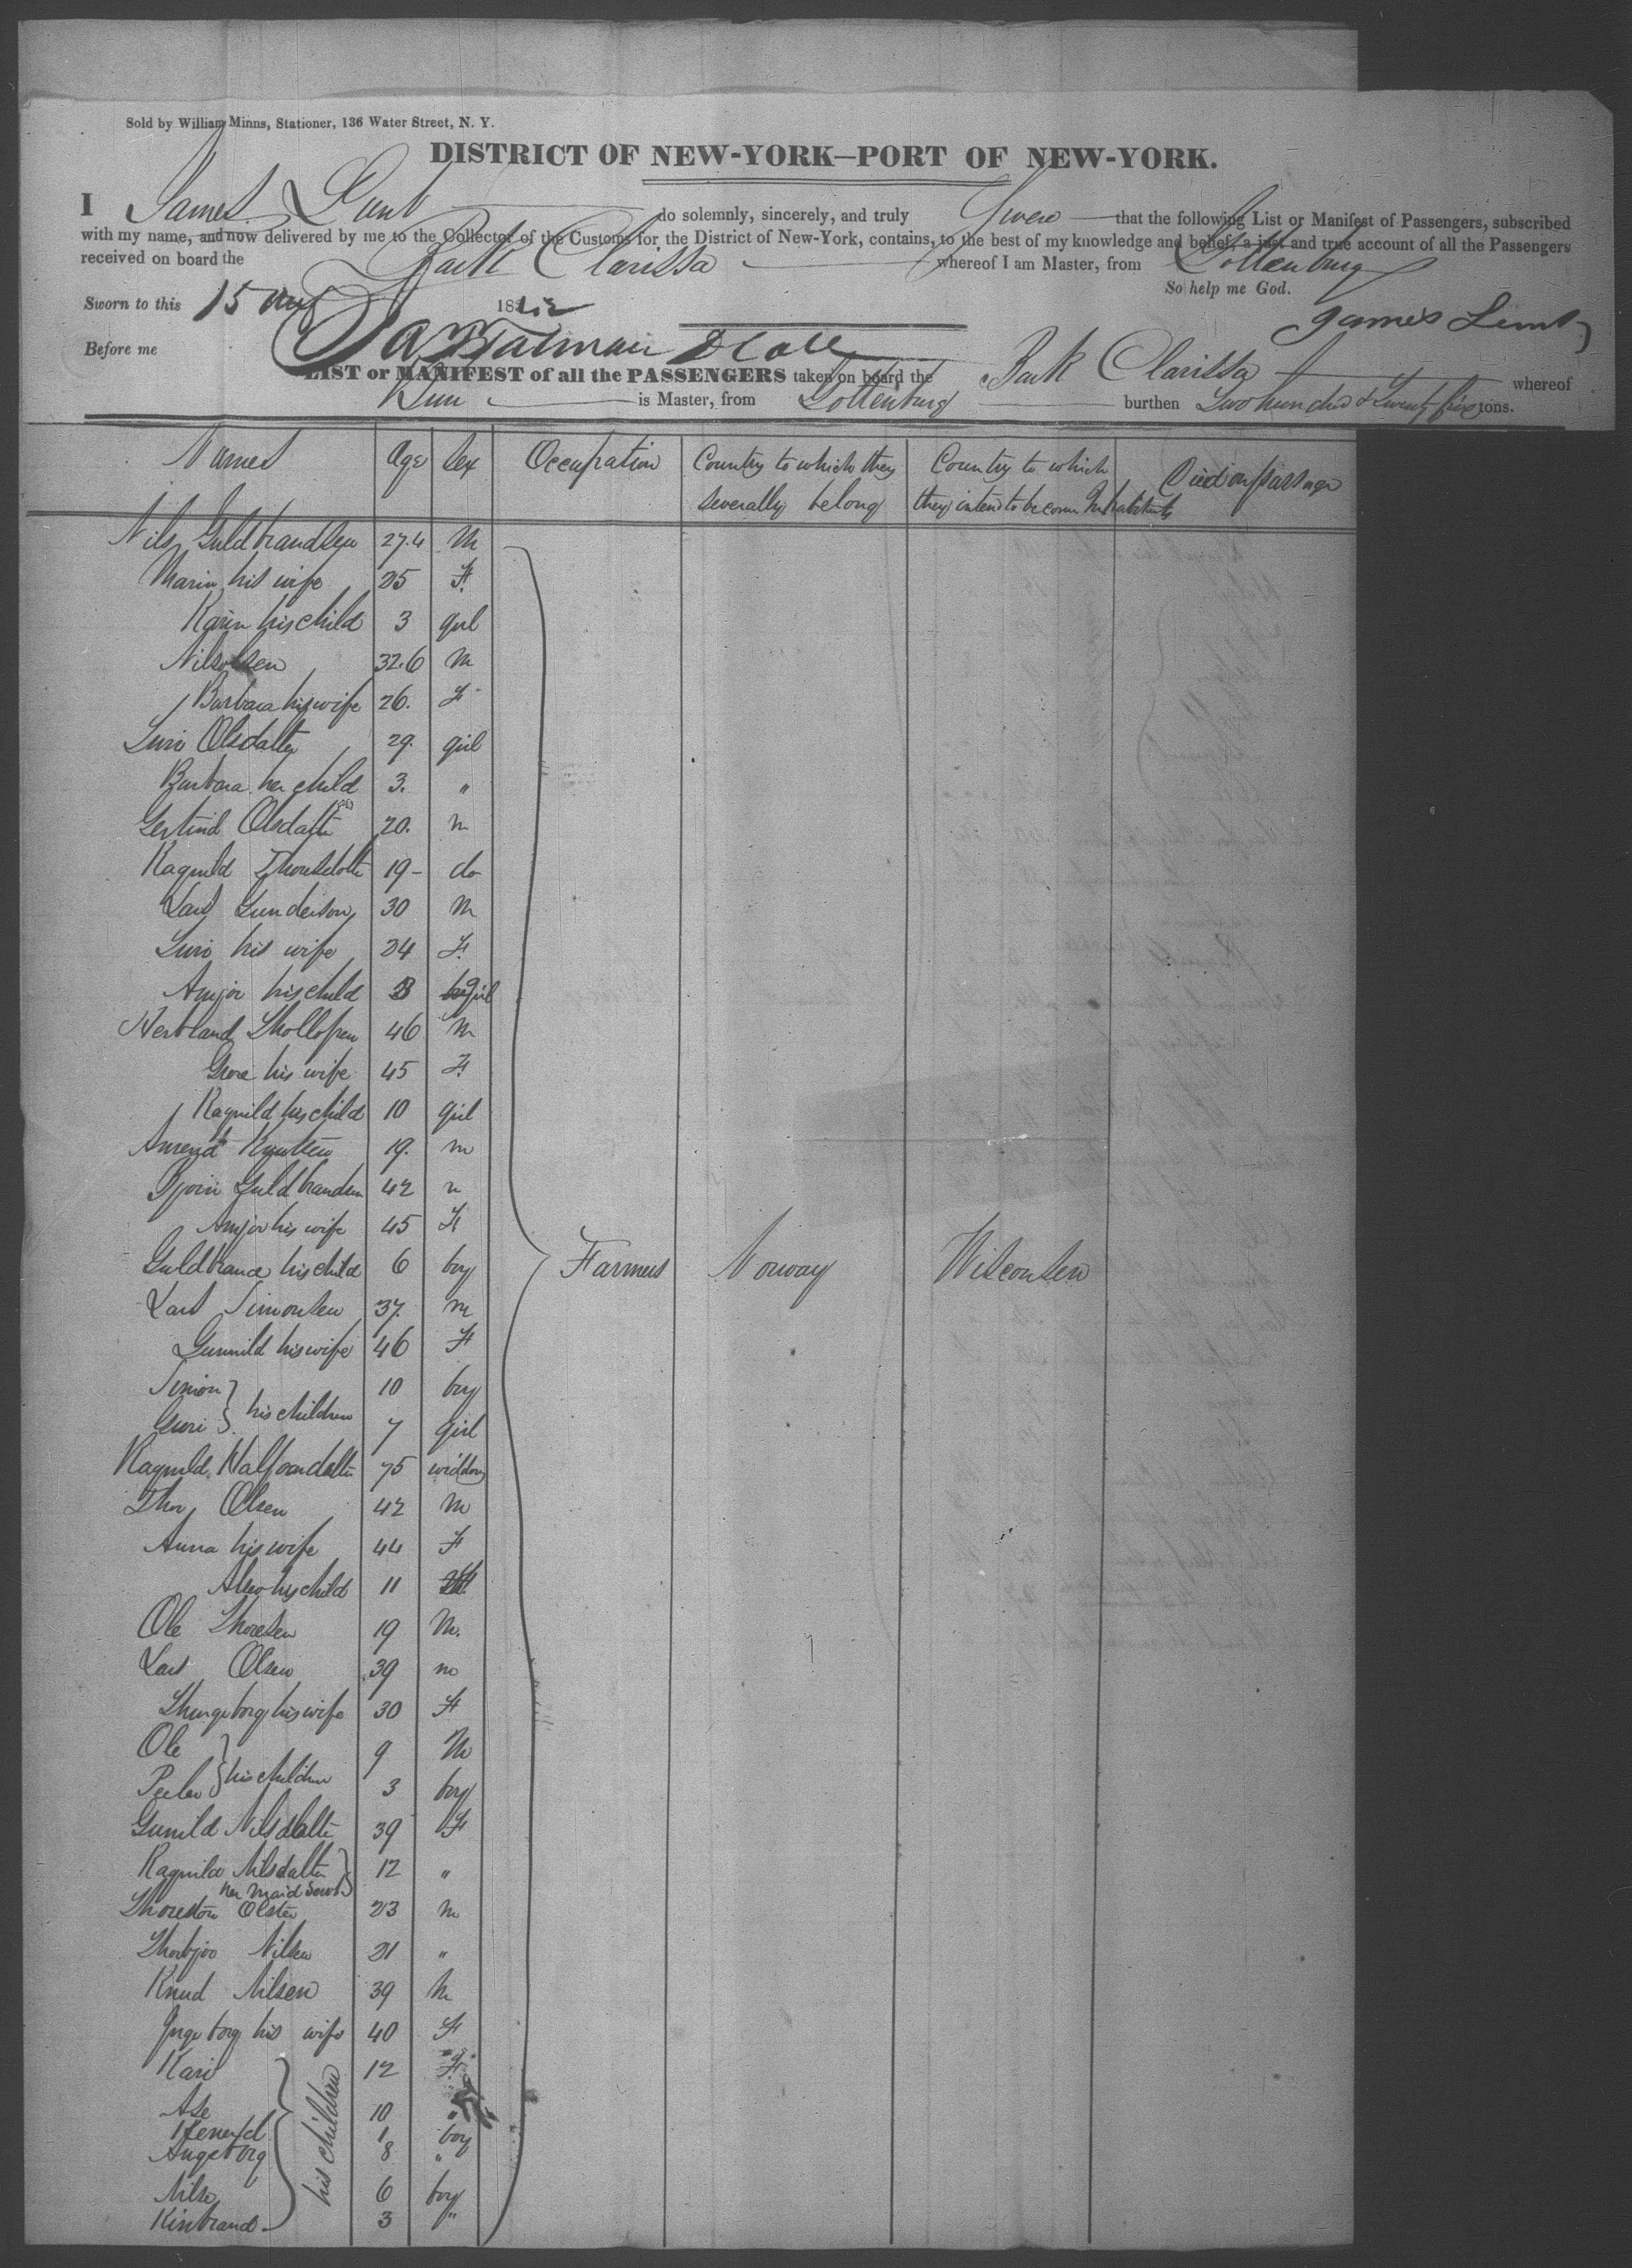 Sold by William Minns, Stationer, 136 Water Street, N. Y.
DISTRICT OF NEW-YORK—PORT OF NEW-YORK.
I James Lunt do solemnly, sincerely, and truly Swear that the following List or Manifest of Passengers, subscribed
with my name, and now delivered by me to the Collector of the Customs for the District of New-York, contains, to the best of my knowledge and belief, a just and true account of all the Passengers
received on board the Bark Clarissa whereof I am Master, from Gottenburg
So help me God.
Sworn to this 15 184
James Lunt
Before me
LIST or MANIFEST of all the PASSENGERS taken on board the Bark Clarissa whereof
is Master, from Gottenburg burthen Two hundred & Twenty tons.
Names Age Sex Occupation Country to which they severally belong Country to which they intend to become Inhabitants Died on passage
Nils Guldbrandsen 27.4 M
Maria his wife 25 F.
Karin his child 3 girl
Nils Olsen 32.6 M
Barbara his wife 26. F
Guri Olsdatter 29. girl
Barbara her child 3. "
Olsdatter 20. "
Ragnild Thorsdatter 19- do
Lars Gunderson 30 M
Guri his wife 24 F.
Anjor his child 3 girl
Herbland 46 M
his wife 45 F.
Ragnild his child 10 girl
Knutsen 19. m
Bjorn Guldbrandsen 42 "
Anjor his wife 45 F
Guldbrand his child 6 boy
Farmers Norway Wisconsen
Lars Simonsen 37. m
Gunnild his wife 46 F
Simon 10 boy
his children
Guri 7 girl
Ragnild 75 widdow
Thor Olsen 42 M
Anna his wife 44 F
his child 11
Ole Thoresen 19 M.
Lars Olsen 39 m
his wife 30 F
Ole 9 M
his children
Peder 3 boy
Gunild Nilsdatter 39 F
Ragnild Nilsdatter 12 "
her maid Servt
Olsten 23 m
Nilsen 31 "
Knud Nilsen 39 M
Ingeborg his wife 40 F
Kari 12 F.
his children
Ase 10 "
1 boy
Angeborg 8 "
Nils 6 boy
3 "